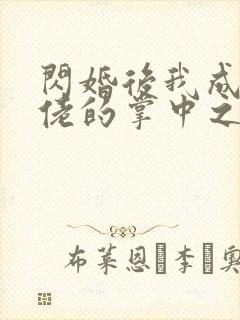 閃婚後我成
佬的掌中之
布萊恩·李·奧